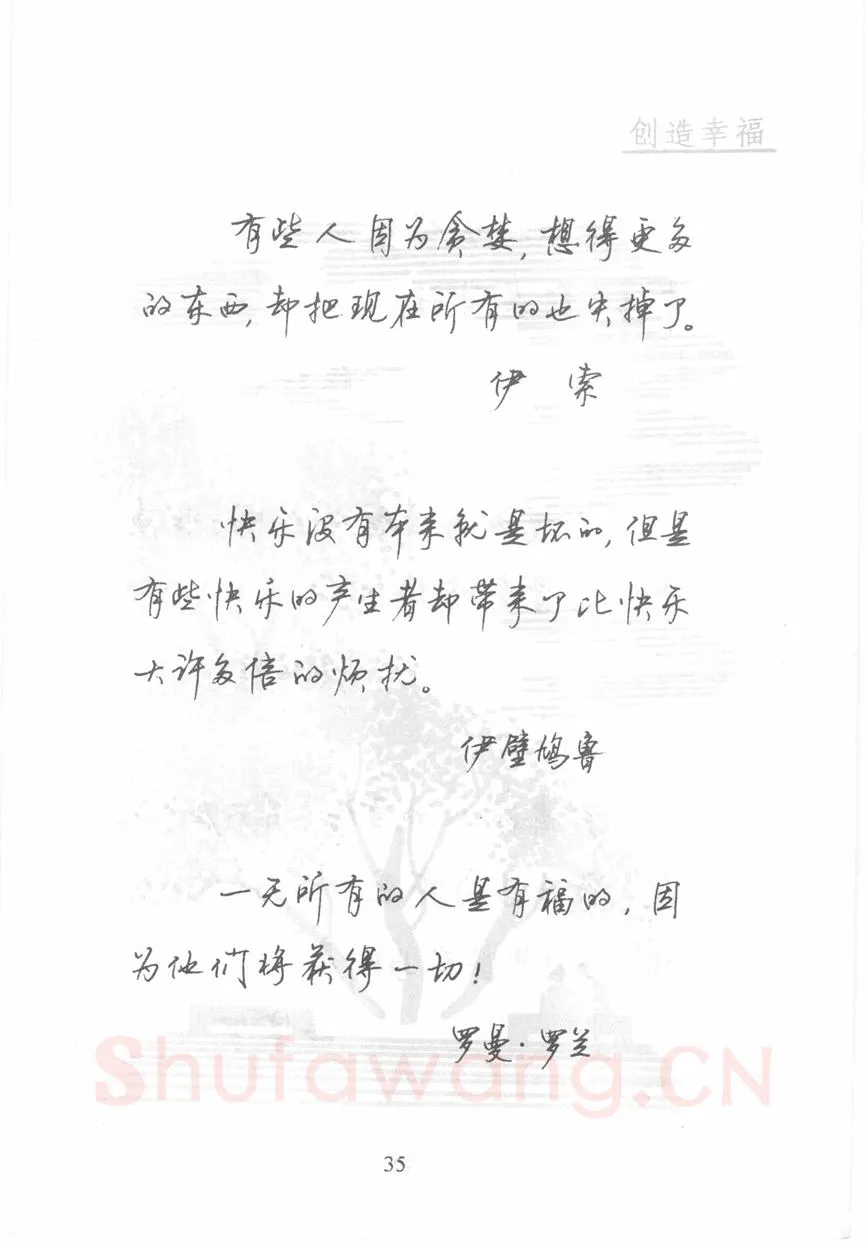 创造幸福
有些人因为贪婪,想得更多
的东西,却把现在所有的也失掉了。
伊 索
快乐没有本来就是坏的,但是
有些快乐的产生者却带来了比快乐
大许多倍的烦扰。
伊壁鸠鲁
一无所有的人是有福的,因
为他们将获得一切!
罗曼·罗兰
Shufawang.CN
35